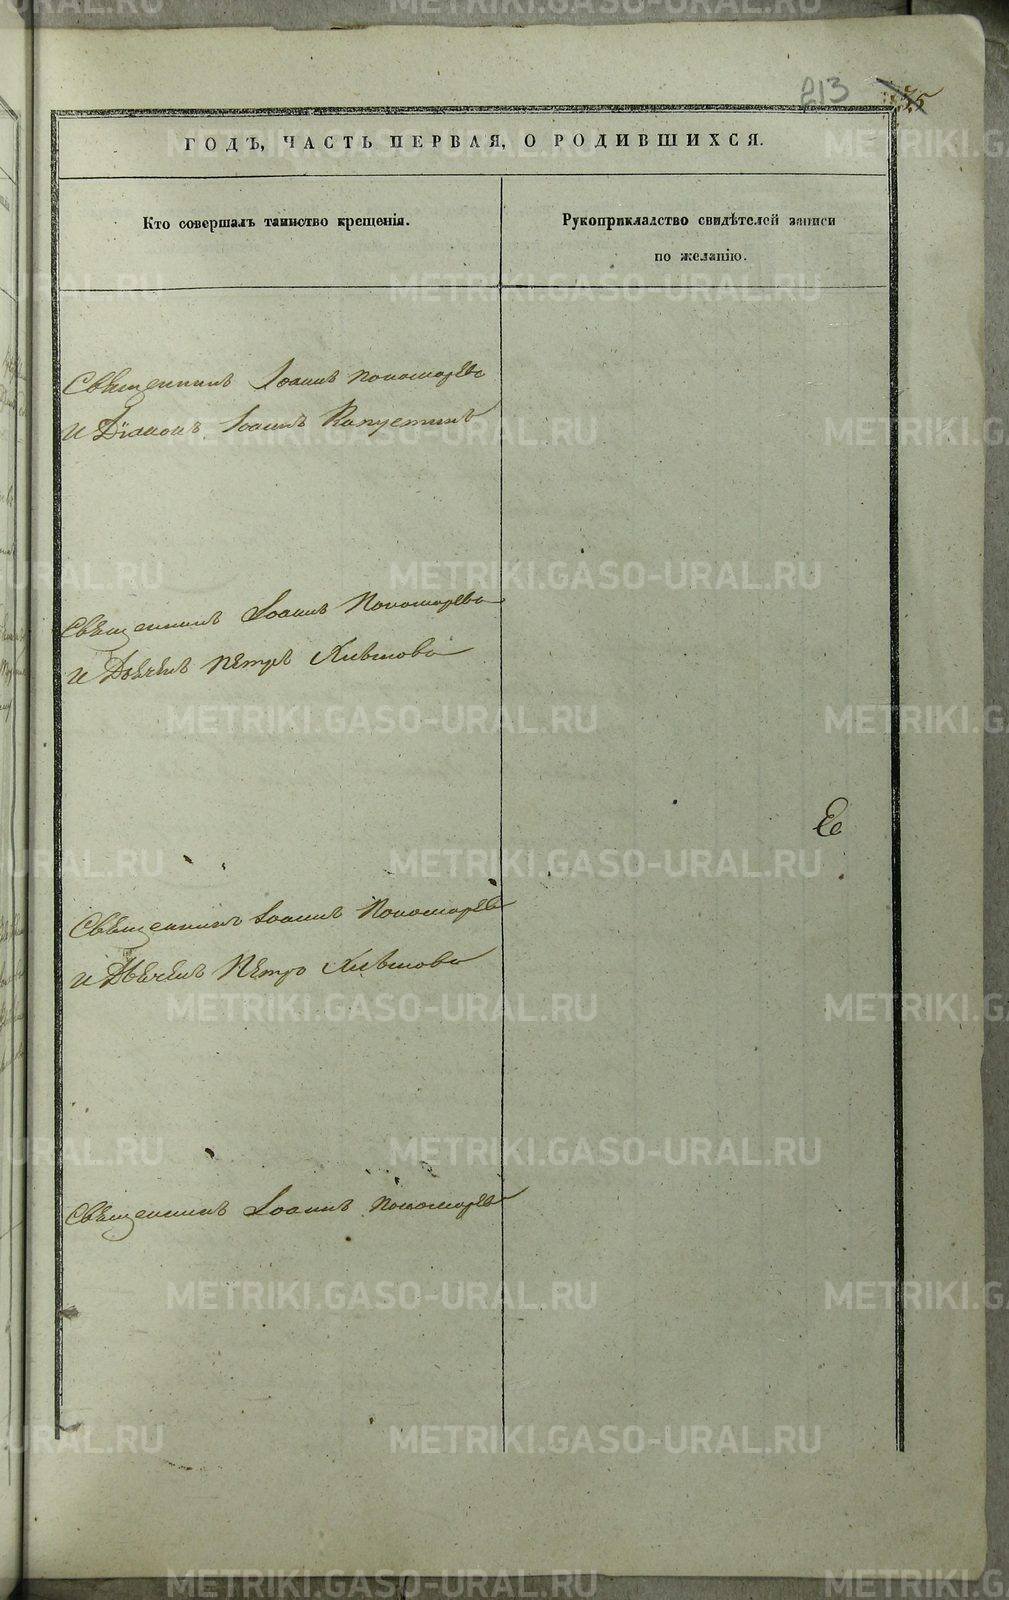 213
ГОДЪ, ЧАСТЬ ПЕРВАЯ, О РОДИВШИХСЯ.
Кто совершалъ таинство крещенія.
Рукоприкладство свидѣтелей записи
по желанію.
Священникъ Іоаннъ Пономаревъ
и Діаконъ Іоаннъ Капустинъ
Священникъ Іоаннъ Пономаревъ
и Дьячекъ Петръ
Священникъ Іоаннъ Пономаревъ
и Дьячекъ Петръ
Священникъ Іоаннъ Пономаревъ
METRIKI.GASO-URAL.RU